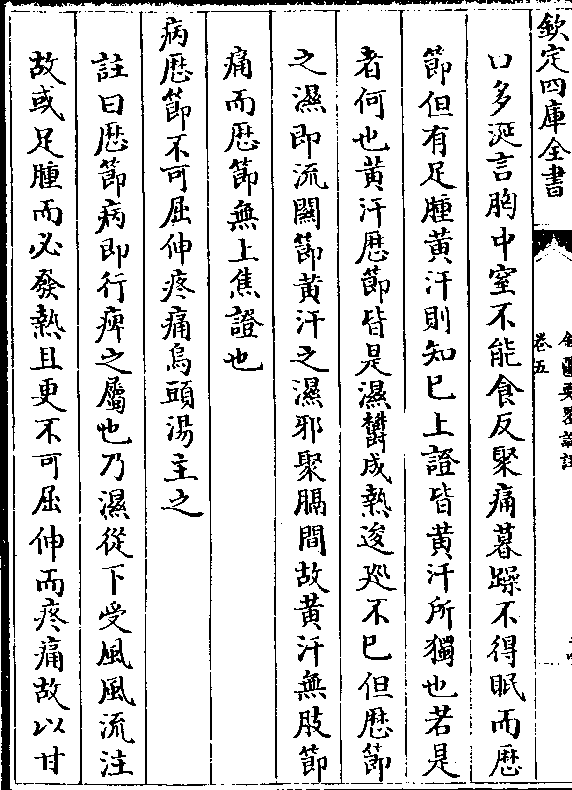 欽定四庫全書
卷五
口多涎言胸中窒不能食反聚痛暮躁不得眠而歴
節但有足腫黄汗則知已上證皆黄汗所獨也若是
者何也黄汗歴節皆是濕欝成熱逡廵不已但歴節
之濕即流關節黄汗之濕邪聚膈間故黄汗無肢節
痛而歴節無上焦證也
病歴節不可屈伸疼痛烏頭湯主之
註曰歴節病即行痺之屬也乃濕從下受風風流注
故或足腫而必發熱且更不可屈伸而疼痛故以甘